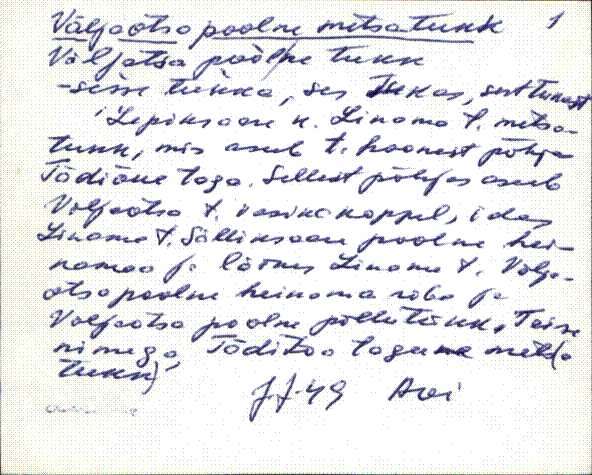 Väljaotsa poolne metsatukk 1
Väljatsa poolne tukk
-sisse tukka, ses tukas, sest tukast
Lepiksaare k. Linama t. metsa-
tukk, mis asub t. hoonest põhja
Tädiaue taga. Sellest põhjas asub
Väljaotsa t. vasikakoppel, idas
Linama t. Sälliksaare poolne hei-
namaa ja lõunas Linama t. Välja-
otsa poolne heinama riba ja
Väljaotsa poolne põllutükk. Teise
nimega, Tädiao tagune metsa
tukk)
J.J.49 Avi